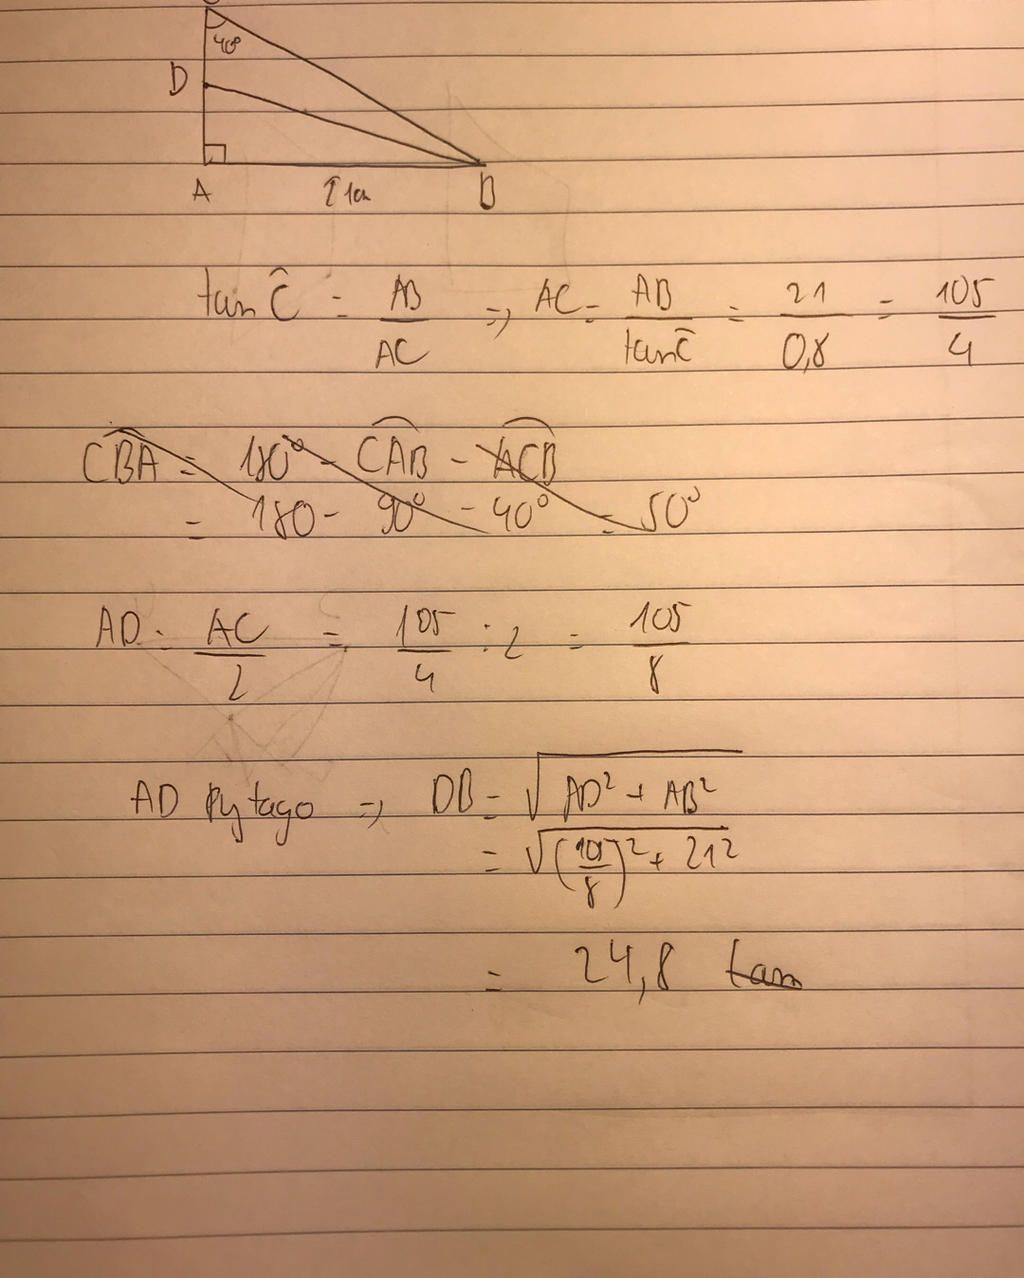 40°
D
A 21cm B
tan Ĉ = AB/AC => AC = AB/tanĈ = 21/0,8 = 105/4
CBA = 180° - CAB - ACB
= 180 - 90° - 40° = 50°
AD = AC/2 = 105/4 : 2 = 105/8
AD Pytago => DB = √AD² + AB²
= √(105/8)² + 21²
= 24,8